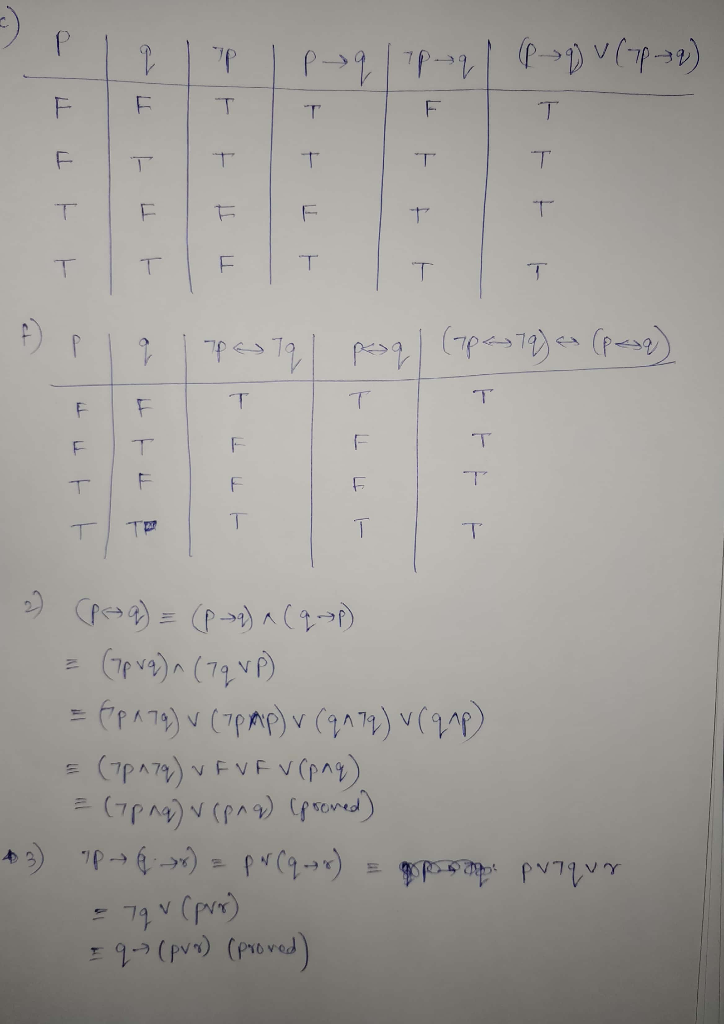 c)
p q ¬p p→q ¬p→q (p→q) ∨ (¬p→q)
F F T T F T
F T T T T T
T F F F T T
T T F T T T
f) p q ¬p↔¬q p↔q (¬p↔¬q) ↔ (p↔q)
F F T T T
F T F F T
T F F F T
T T T T T
2) (p↔q) ≡ (p→q) ∧ (q→p)
≡ (¬p∨q) ∧ (¬q∨p)
≡ (¬p∧¬q) ∨ (¬p∧p) ∨ (q∧¬q) ∨ (q∧p)
≡ (¬p∧¬q) ∨ F ∨ F ∨ (p∧q)
≡ (¬p∧q) ∨ (p∧q) (proved)
3) ¬p → (q→r) ≡ p∨(q→r) ≡ p∨¬q∨r
≡ ¬q ∨ (p∨r)
≡ q→(p∨r) (proved)